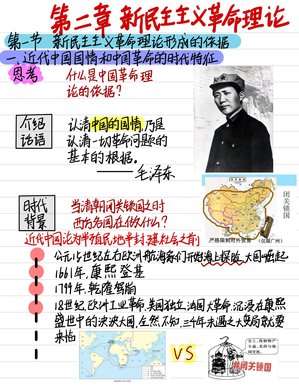 第二章 新民主主义革命理论
第一节 新民主主义革命理论形成的依据
一、近代中国国情和中国革命的时代特征
思考
什么是中国革命理
论的依据？
介绍
话语
认清中国的国情，乃是
认清一切革命问题的
基本的根据。
——毛泽东
闭关锁国
严格限制对外贸易（仅限广州）
时代
背景
当清朝闭关锁国之时
西方各国在做什么？
近代中国沦为半殖民地半封建社会之前
公元15世纪左右欧洲航海家们开始海上探险，大国崛起
1661年，康熙登基
1799年，乾隆驾崩
18世纪，欧洲工业革命，美国独立，法国大革命，沉浸在康熙
盛世中的泱泱大国，在然不知，三千年未遇之大变局就要
来临
VS
闭关锁国